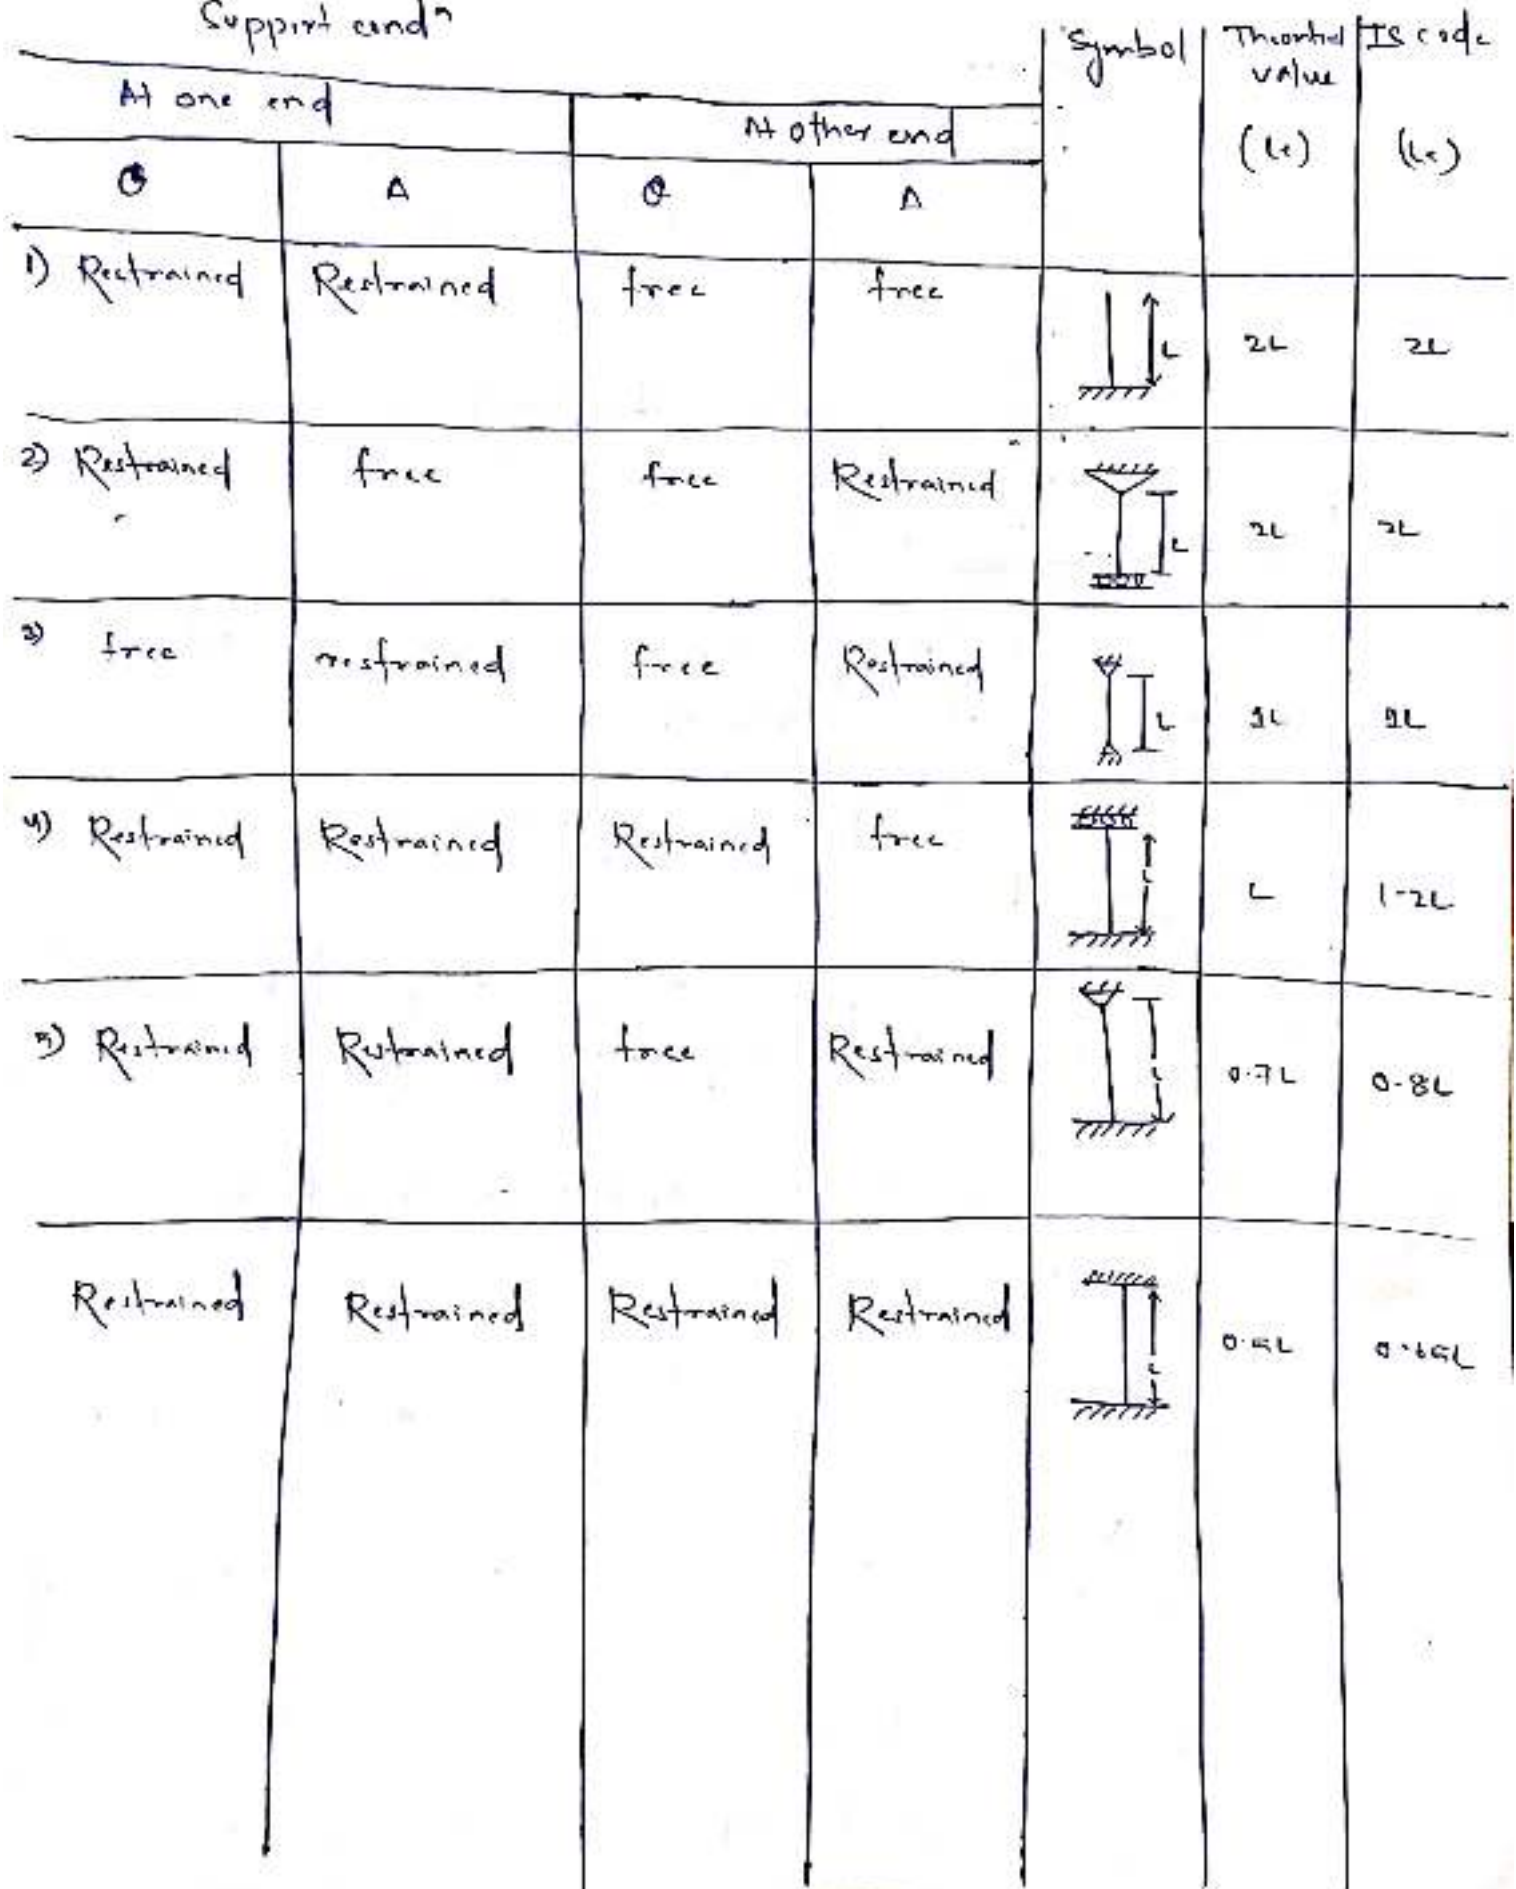 Support condⁿ
Symbol Theoretical value (le) IS code (le)
At one end At other end
θ Δ θ Δ
1) Restrained Restrained free free L 2L 2L
2) Restrained free free Restrained L 2L 2L
3) free restrained free Restrained L 1L 1L
4) Restrained Restrained Restrained free L L 1.2L
5) Restrained Restrained free Restrained L 0.7L 0.8L
Restrained Restrained Restrained Restrained L 0.5L 0.65L